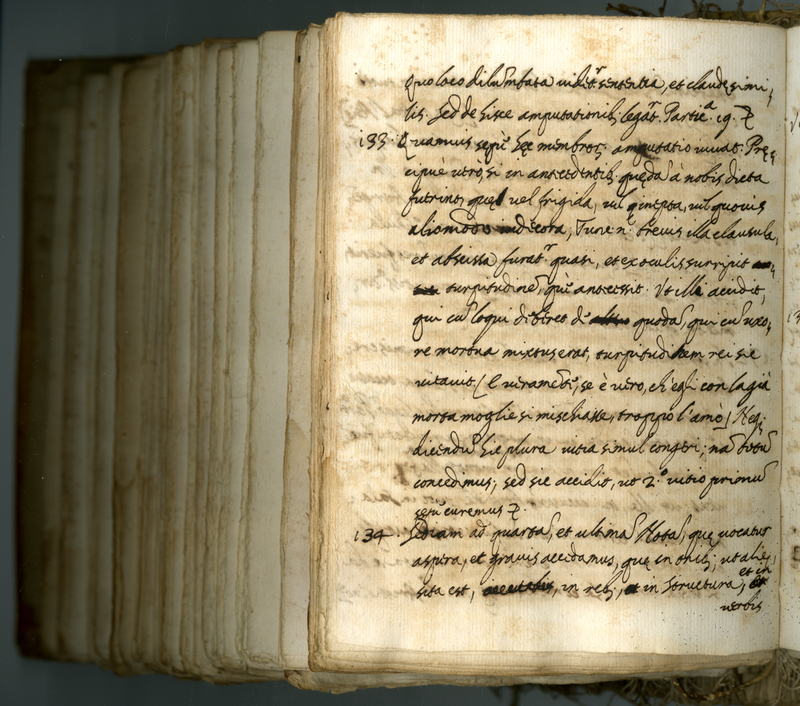 Quo loco dilũbata videt^r sententia, et claudę simi,
lis. Sed de hisce amputationib; legat^r. Partic^a. 19. 
133. Quamvis sepiũ hęc membror; amputatio iuvat. Prę,
cipuè vero, si in antecedentib; quędã à nobis dicta
fuerint, quę vel frigida, vel inepta, vel quovis
alio modo indecora, Tunc n. brevis illa clausula,
et abscissa furat^r quasi, et ex oculis surripit
turpitudinẽ, quę antecessit. Ut illi accidit,
qui cũ loqui deberet de quodã, qui cũ uxo,
re mortua mixtus erat, turpitudinem rei sic
vitavit. (E veramẽte, se è vero, ch'egli con la già
morta moglie si mischiasse, troppo l'amò) Neq;
dicendũ hic plura vitia simul congeri; nã totũ
concedimus; sed sic accidit, ut 2.º vitio primũ
occuremus
134. Etiam ad quartã, et ultimã Notã, quę vocatur
aspera, et gravis accedamus, quę in trib;, ut alię,
sita est, in reb;, et in structura, et in
verbis